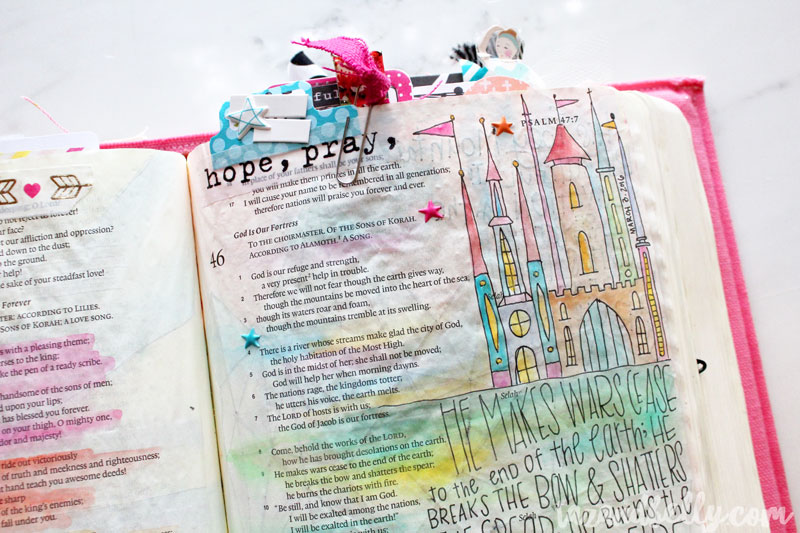 ful
PSALM 47:7
hope, pray,
in place of your fathers shall be your sons;
you will make them princes in all the earth.
17 I will cause your name to be remembered in all generations;
therefore nations will praise you forever and ever.
God Is Our Fortress
46 TO THE CHOIRMASTER. OF THE SONS OF KORAH.
ACCORDING TO ALAMOTH. A SONG.
1 God is our refuge and strength,
a very present help in trouble.
2 Therefore we will not fear though the earth gives way,
though the mountains be moved into the heart of the sea,
3 though its waters roar and foam,
though the mountains tremble at its swelling.
4 There is a river whose streams make glad the city of God,
the holy habitation of the Most High.
5 God is in the midst of her; she shall not be moved;
God will help her when morning dawns.
6 The nations rage, the kingdoms totter;
he utters his voice, the earth melts.
7 The LORD of hosts is with us;
the God of Jacob is our fortress. Selah
8 Come, behold the works of the LORD,
how he has brought desolations on the earth.
9 He makes wars cease to the end of the earth;
he breaks the bow and shatters the spear;
he burns the chariots with fire.
10 "Be still, and know that I am God.
I will be exalted among the nations,
I will be exalted in the earth!"
MARCH 8, 2016
HE MAKES WARS CEASE
to the end of the earth; HE
BREAKS THE BOW & SHATTERS
THE SPEAR; HE BURNS the
FIRE
not reject us forever!
our face?
our affliction and oppression?
down to the dust;
to the ground.
help!
the sake of your steadfast love!
Forever
ACCORDING TO LILIES.
SONS OF KORAH; A LOVE SONG.
with a pleasing theme;
verses to the king;
like the pen of a ready scribe.
handsome of the sons of men;
upon your lips;
has blessed you forever.
on your thigh, O mighty one,
and majesty!
ride out victoriously
of truth and meekness and righteousness;
hand teach you awesome deeds!
sharp
of the king's enemies;
fall under you.